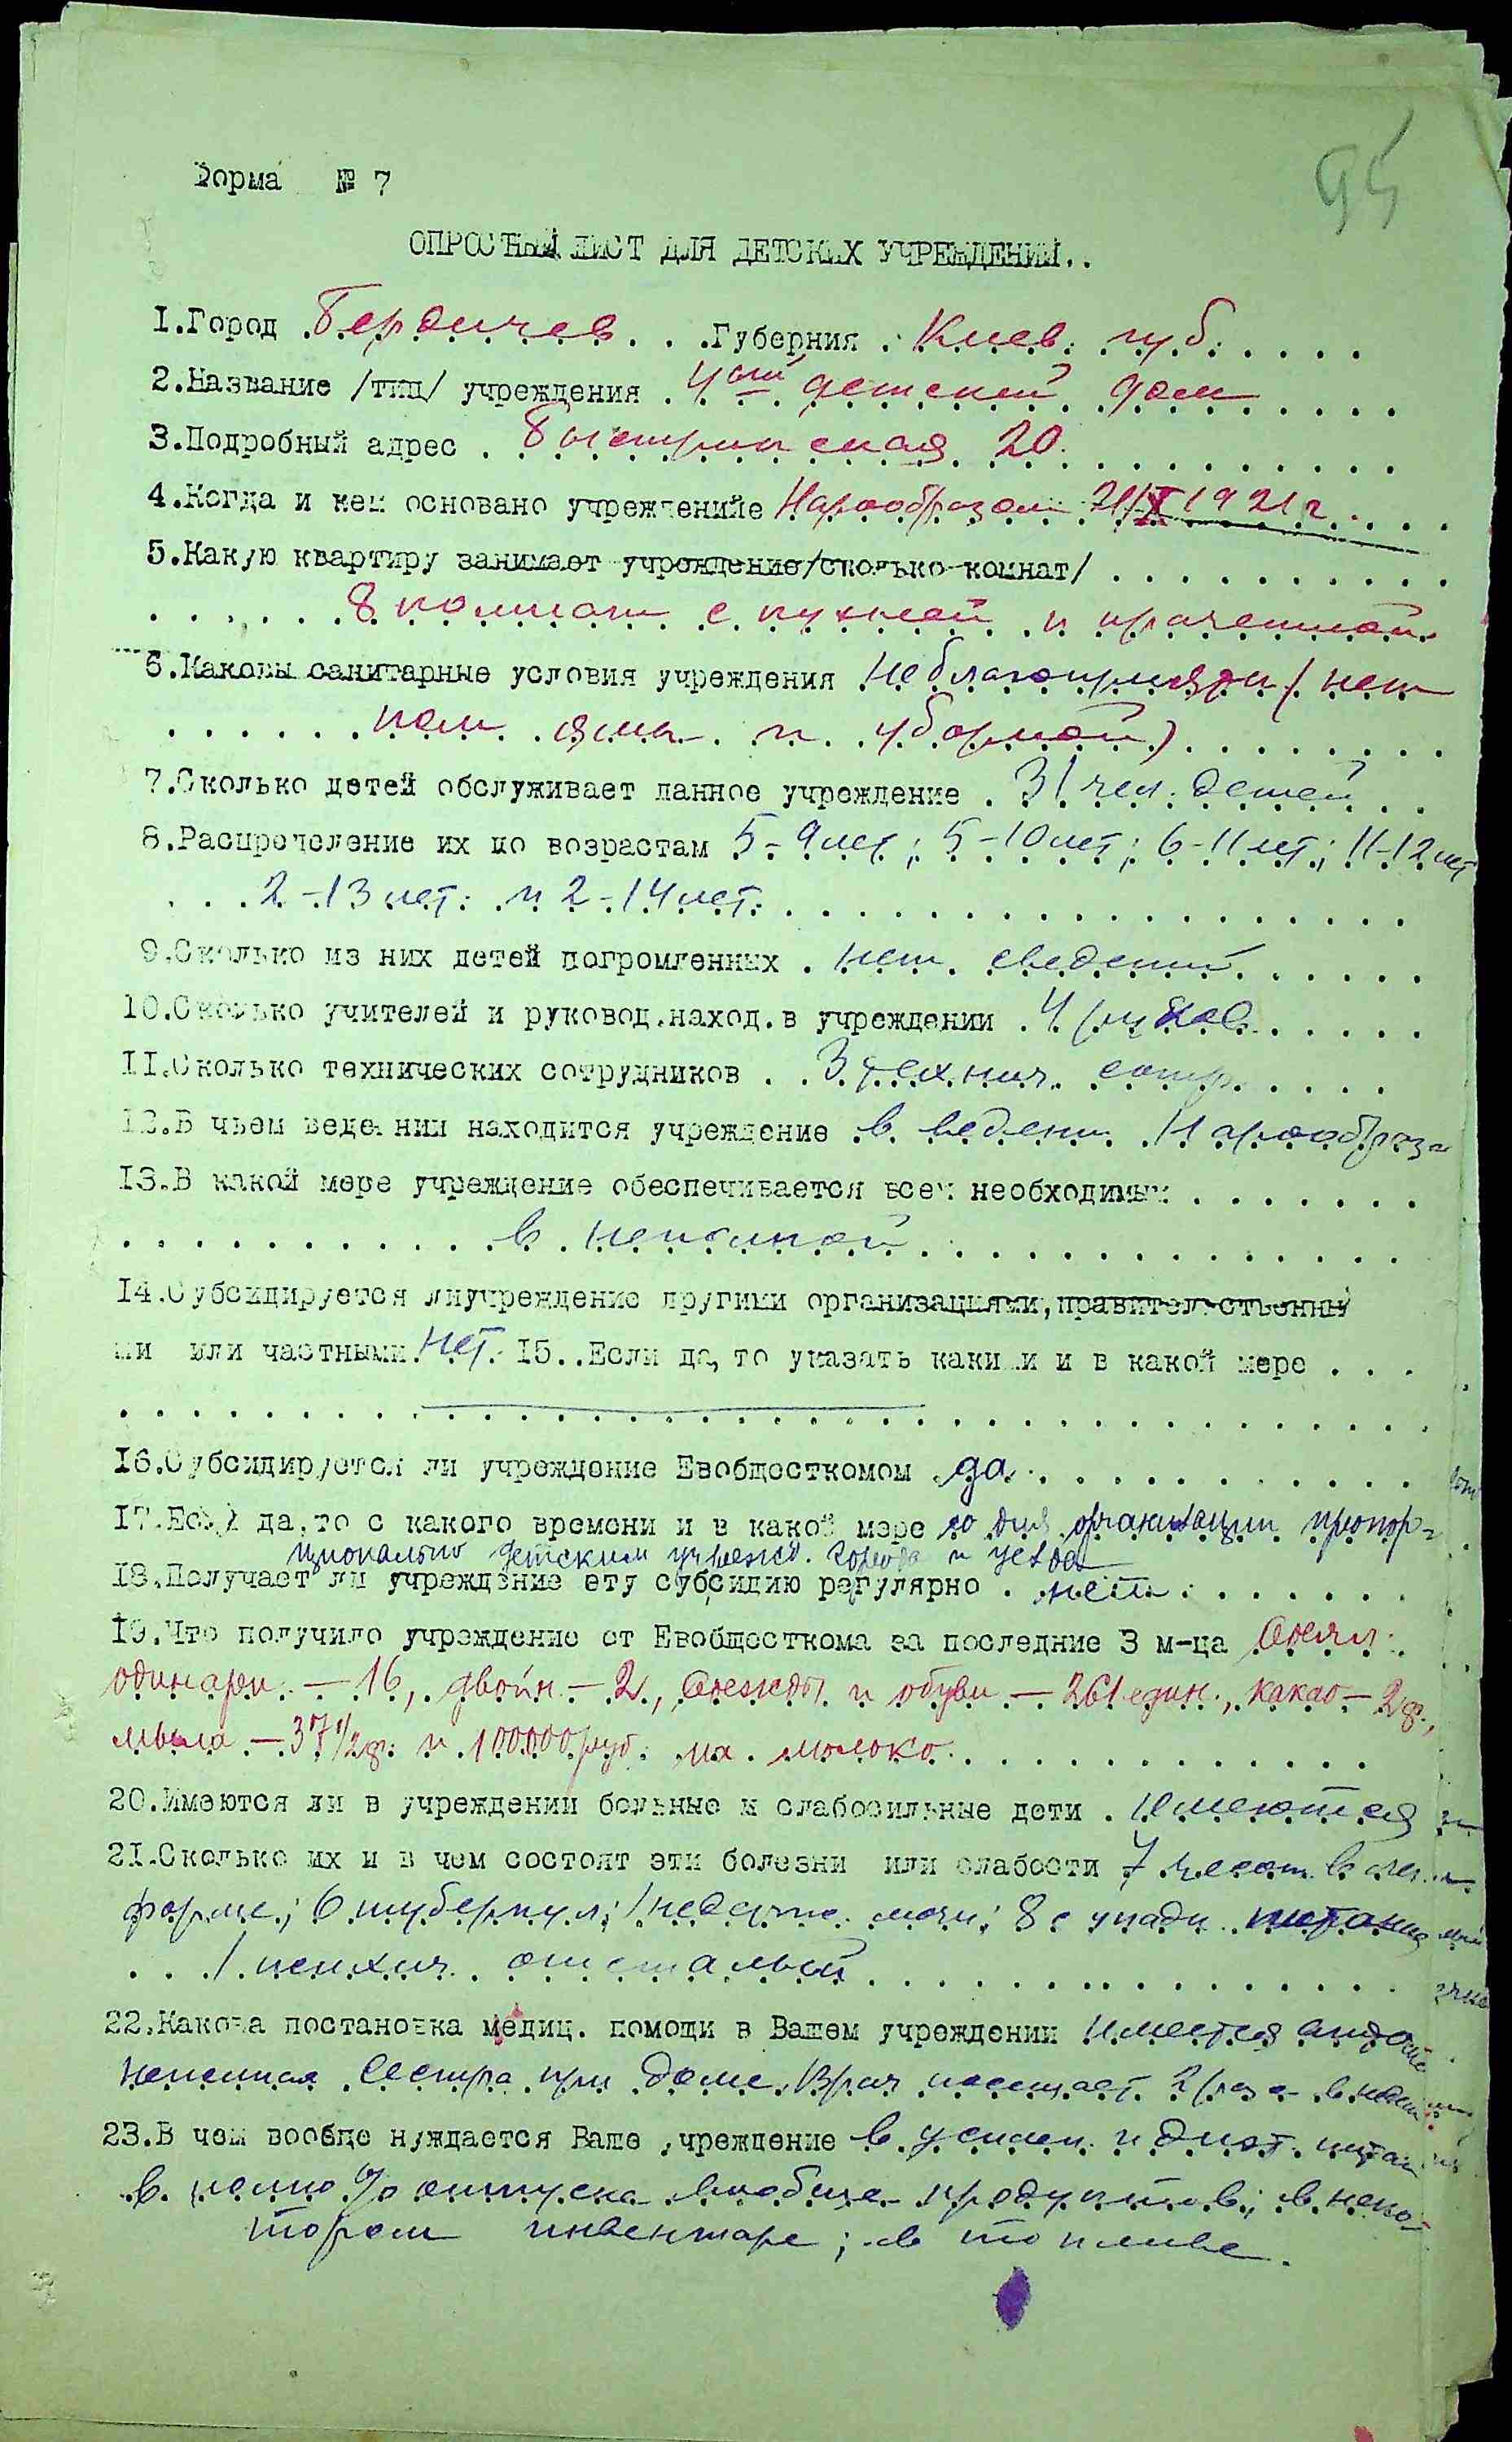 95
Форма № 7
ОПРОСНЫЙ ЛИСТ ДЛЯ ДЕТСКИХ УЧРЕЖДЕНИЙ..
1.Город .Бердичев. . .Губерния . Киев. губ. . . . .
2.Название /тип/ учреждения . 4ый детский дом . . . .
3.Подробный адрес . Быстринская 20. . . . . . . . . .
4.Когда и кем основано учреждениие Наробразом 21/X 1921 г. . . .
5.Какую квартиру занимает учреждение/сколько комнат/ . . . . . . . . . .
. . . . . . 8 комнат с кухней и прачешной.
6.Каковы санитарные условия учреждения Неблагоприятн/ нет
. . . . . . пом. ямы и уборной) . . . . . . . .
7.Сколько детей обслуживает данное учреждение . 31 чел. детей . .
8.Распределение их по возрастам 5-9 лет; 5-10 лет; 6-11 лет; 11-12 лет
. . . 2-13 лет. и 2-14 лет. . . . . . . . . . . . . . . . . . .
9.Сколько из них детей погромленных . нет сведений . . . . . .
10.Сколько учителей и руковод.наход.в учреждении . 4 руков. . . . . .
11.Сколько технических сотрудников . . 3 технич. сотр. . . . .
12.В чьем ведении находится учреждение в ведени Наробраза
13.В какой мере учреждение обеспечивается всем необходимым . . . . . . .
. . . . . . . . . . . в неполной . . . . . . . . . . . . . .
14.Субсидируется лиучреждение другими организациями,правительственны
ми или частными.Нет. 15..Если да,то указать какими и в какой мере . . .
16.Субсидируется ли учреждение Евобщесткомом .да. . . . . . . . . . . .
17.Если да,то с какого времени и в какой мере со дня организации пропор-
ционально детским учрежд. города и уезда
18.Получает ли учреждение эту субсидию регулярно . нет. . . . . . .
19.Что получило учреждение от Евобщесткома за последние 3 м-ца Одеял.
одинарн. - 16, двойн. - 2, Одежды и обуви - 261 един., какао - 2 ф.,
мыла - 37 1/2 ф. и 100000 руб. на молоко. . . . . . . . . . . . .
20.Имеются ли в учреждении больные и слабосильные дети . Имеются
21.Сколько их и в чем состоят эти болезни или слабости 7 чесот. в лег.
форме; 6 туберкул; 1 недерж. мочи; 8 с упадк. питания
. . .1 психич. отсталый . . . . . . . . . . . . . . .
22.Какова постановка медиц. помощи в Вашем учреждении Имеется
сестра при доме. Врач посещает 2 раза в
23.В чем вообще нуждается Ваше учреждение в усилен. и диэт. питан
в полно % отпуска вообще продуктов; в неко-
тором инвентаре; в топливе.